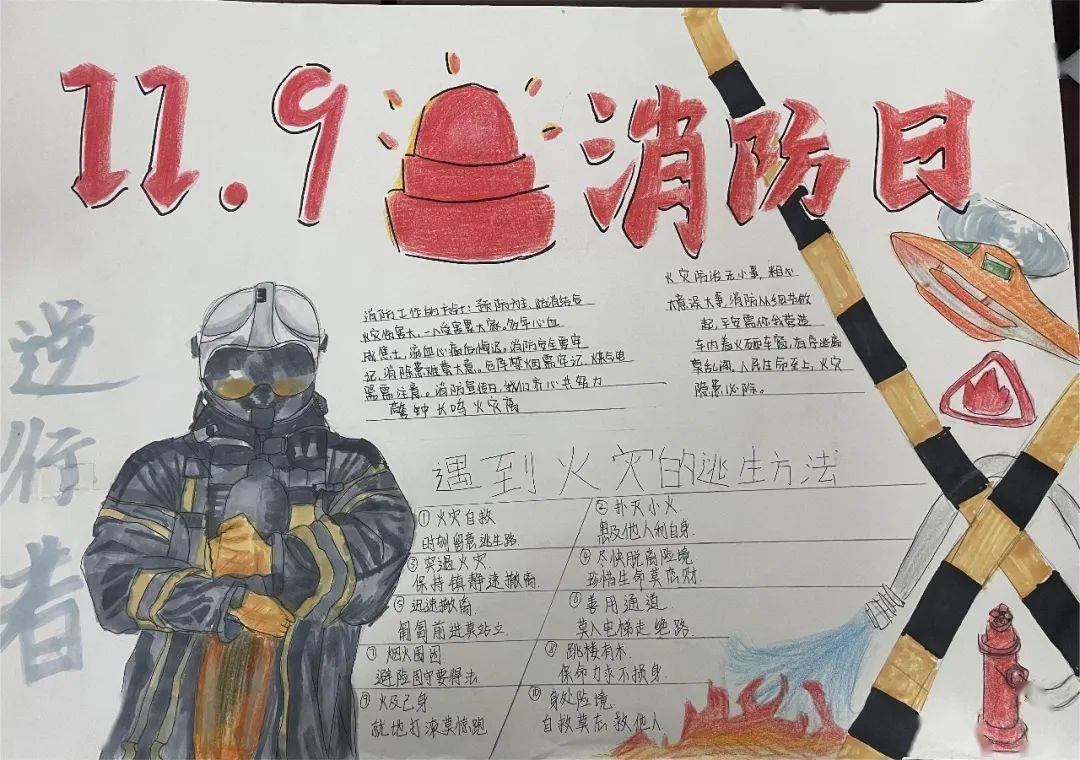 11.9 消防日
逆行者
消防工作的方针：预防为主，防消结合
火灾伤害大，一人受害累大家。多年心血
成焦土，流血心痛后悔迟，消防安全要牢
记，消除患难莫大意，仓库禁烟需牢记，煤气电
器需注意。消防宣传日，我们齐心共努力
警钟长鸣火灾离
火灾防治无小事，粗心
大意误大事，消防从细节做
起，平安需你我营造
车内着火砸车窗，有序逃离
莫乱闯，人民生命至上，火灾
隐患必除。
遇到火灾的逃生方法
① 火灾自救
时刻留意逃生路
② 扑灭小火
惠及他人利自身
③ 突遇火灾
保持镇静速撤离
④ 尽快脱离险境
珍惜生命莫恋财
⑤ 迅速撤离
匍匐前进莫站立
⑥ 善用通道
莫入电梯走绝路
⑦ 烟火围困
避险固守要得法
⑧ 跳楼有术
保命力求不损身
⑨ 火及己身
就地打滚莫惊跑
⑩ 身处险境
自救莫忘救他人